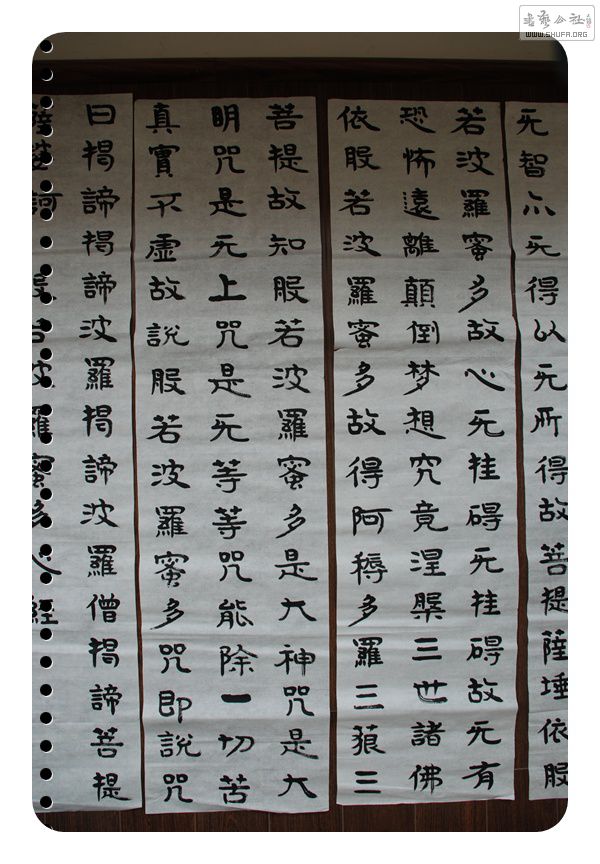 无智亦无得以无所得故菩提薩埵依般
若波羅蜜多故心无挂碍无挂碍故无有
恐怖遠離顛倒梦想究竟涅槃三世諸佛
依般若波羅蜜多故得阿耨多羅三藐三
菩提故知般若波羅蜜多是大神咒是大
明咒是无上咒是无等等咒能除一切苦
真實不虛故說般若波羅蜜多咒即說咒
曰揭諦揭諦波羅揭諦波羅僧揭諦菩提
薩婆訶 般若波羅蜜多心經
书艺公社
WWW.SHUFA.ORG